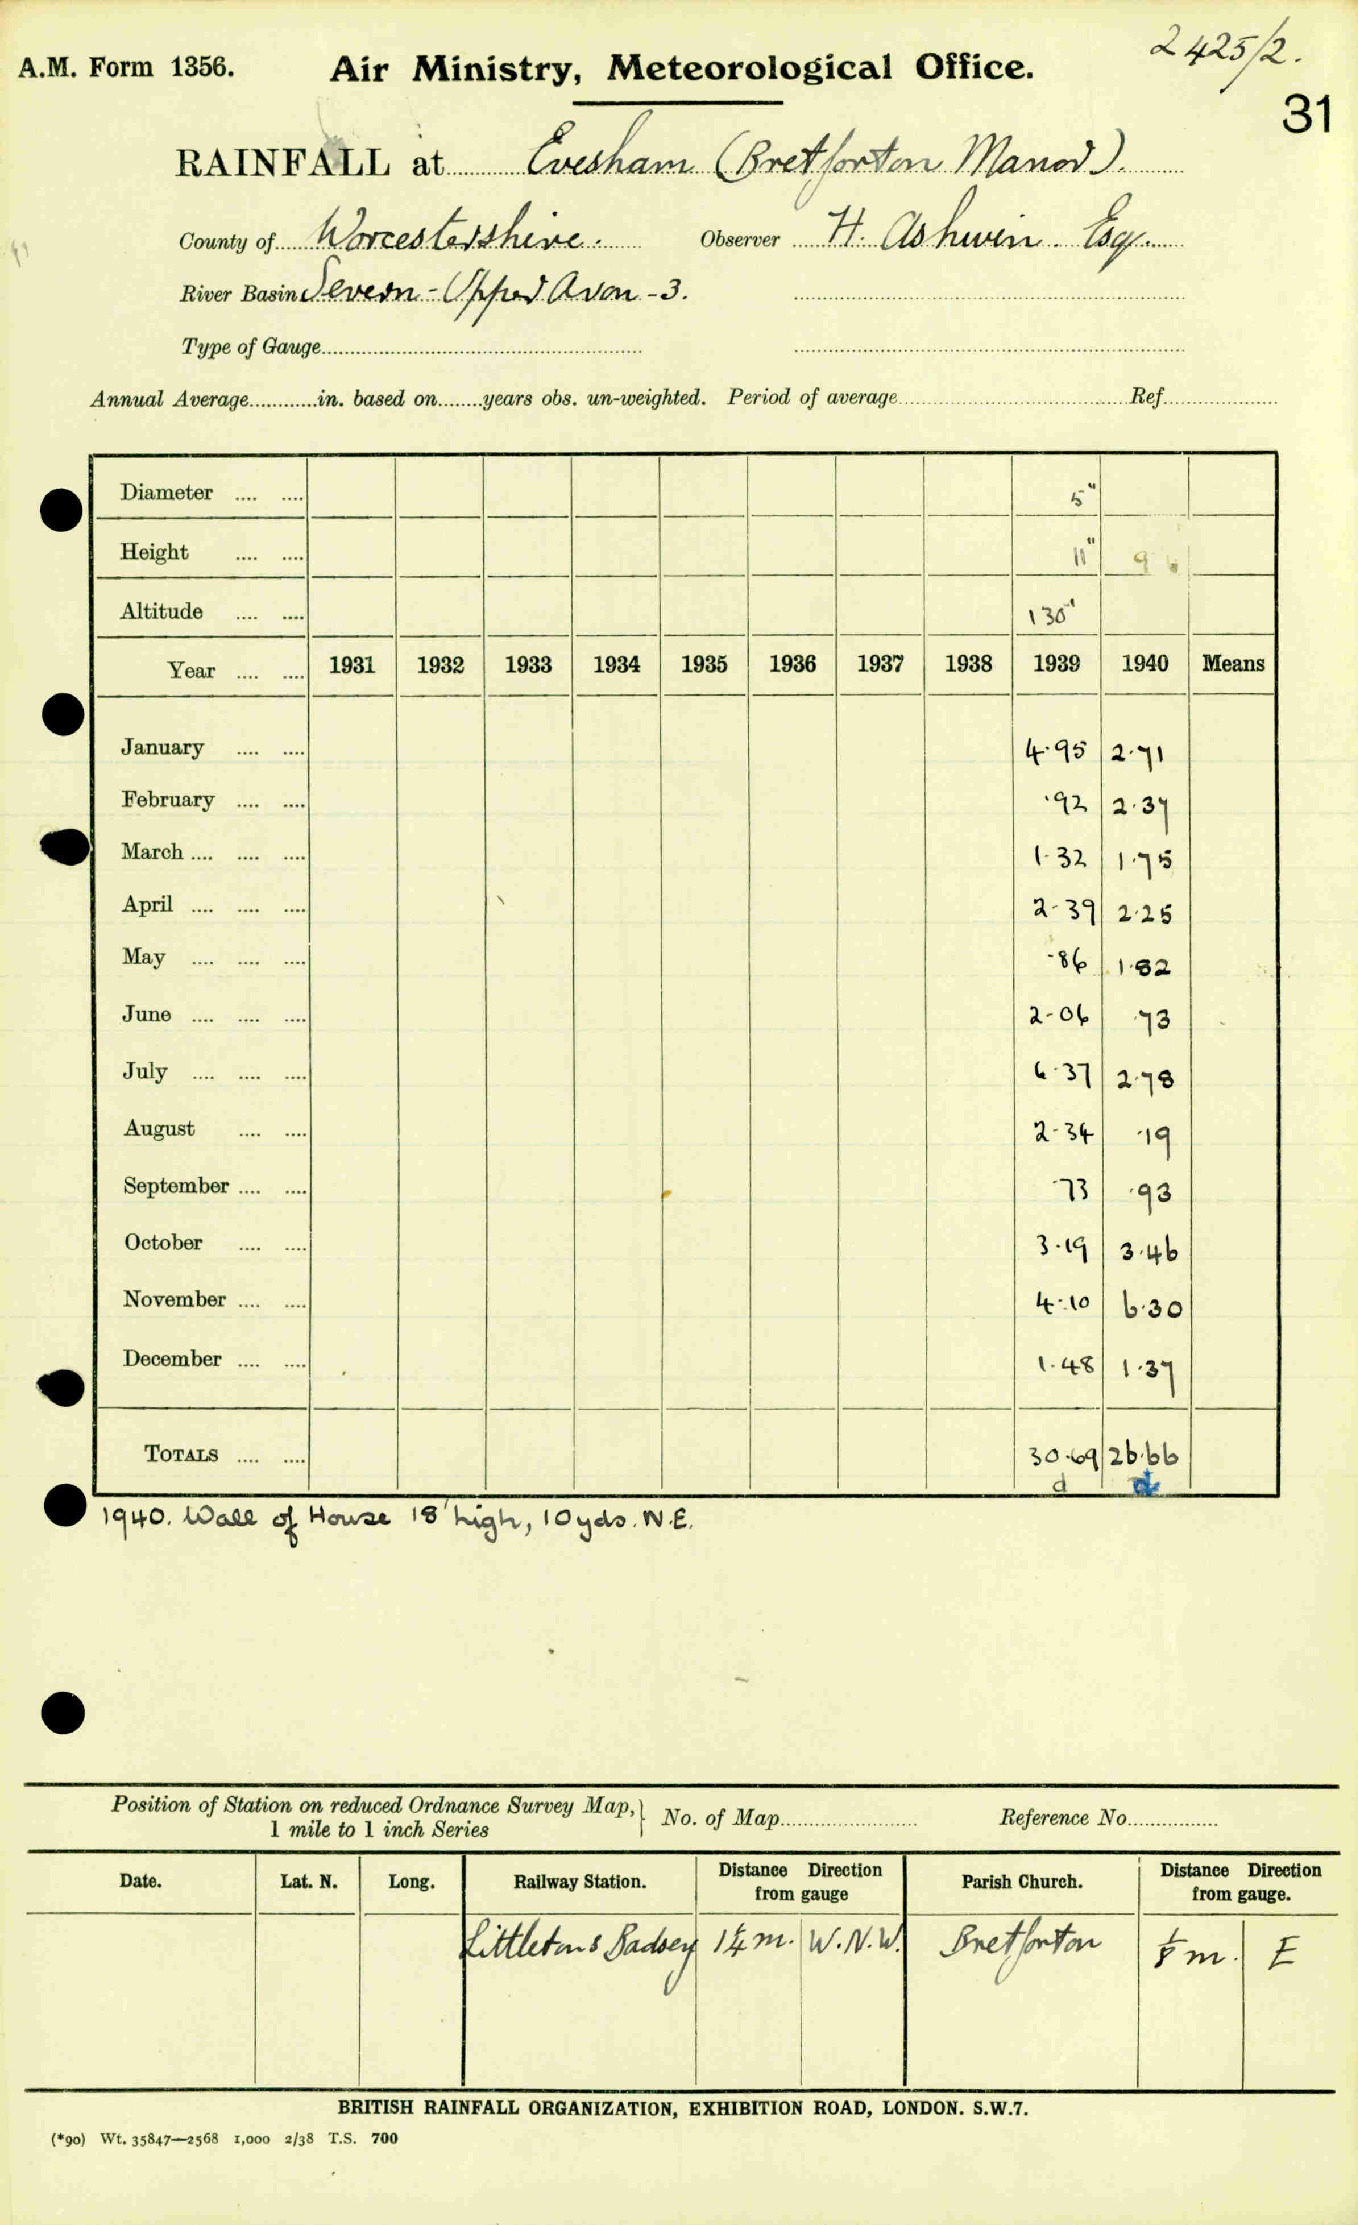 2425/2.
A.M. Form 1356. Air Ministry, Meteorological Office.
31
RAINFALL at Evesham (Bretforton Manor).
County of Worcestershire. Observer H. Ashwin Esq.
River Basin Severn - Upper Avon - 3.
Type of Gauge
Annual Average in. based on years obs. un-weighted. Period of average Ref.
Diameter 5"
Height 11"
Altitude 130'
Year 1931 1932 1933 1934 1935 1936 1937 1938 1939 1940 Means
January 4.95 2.71
February .92 2.37
March 1.32 1.75
April 2.39 2.25
May .86 1.82
June 2.06 .73
July 6.37 2.78
August 2.34 .19
September .73 .93
October 3.19 3.46
November 4.10 6.30
December 1.48 1.37
TOTALS 30.69 26.66
d d
1940. Wall of House 18' high, 10 yds. N.E.
Position of Station on reduced Ordnance Survey Map, No. of Map Reference No.
1 mile to 1 inch Series
Date. Lat. N. Long. Railway Station. Distance Direction from gauge Parish Church. Distance Direction from gauge.
Littleton & Badsey 1¼ m. W.N.W. Bretforton ⅛ m. E
BRITISH RAINFALL ORGANIZATION, EXHIBITION ROAD, LONDON. S.W.7.
(*90) Wt. 35847—2568 1,000 2/38 T.S. 700